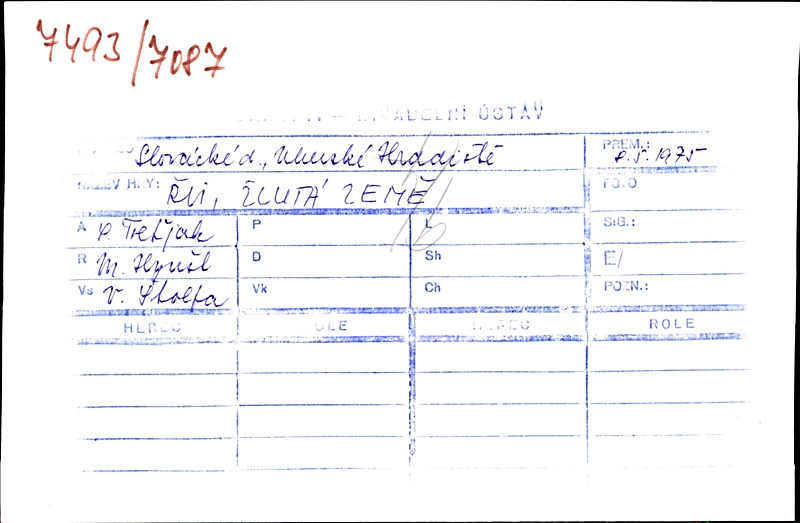 7493/7087
DIVADELNÍ ÚSTAV
Slovácké d., Uherské Hradiště
PREM.:
8.5.1975
NÁZEV HRY: ŘVI, ŽLUTÁ ZEMĚ
FOTO
A S. Treťjak P
SIG.:
R M. Hynšt D Sh
E/
Vs V. Štolfa Vk Ch
POZN.:
HEREC ROLE HEREC ROLE